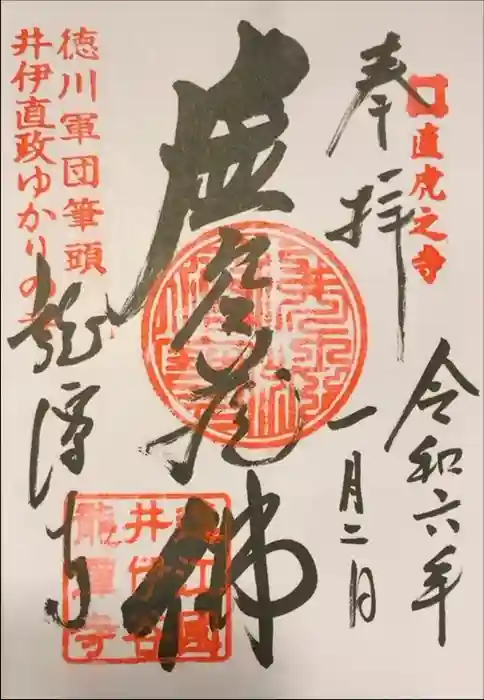 直虎之寺
奉拝
令和六年
一月二日
虚空蔵佛
徳川軍団筆頭
井伊直政ゆかりの寺
龍潭寺
遠江國
井伊谷
龍潭寺